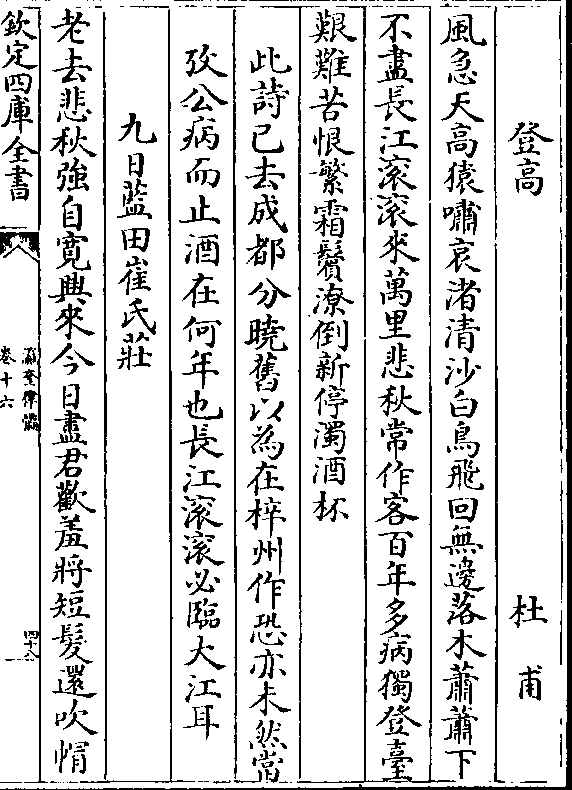 登高　杜甫
風急天高猿嘯哀渚清沙白鳥飛回無邊落木蕭蕭下
不盡長江滚滚來萬里悲秋常作客百年多病獨登臺
艱難苦恨繁霜鬢潦倒新停濁酒杯
此詩已去成都分曉舊以為在梓州作恐亦未然當
攷公病而止酒在何年也長江滚滚必臨大江耳
九日藍田崔氏莊
老去悲秋強自寛興來今日盡君歡羞將短髮還吹帽
欽定四庫全書
瀛奎律髓
卷十六